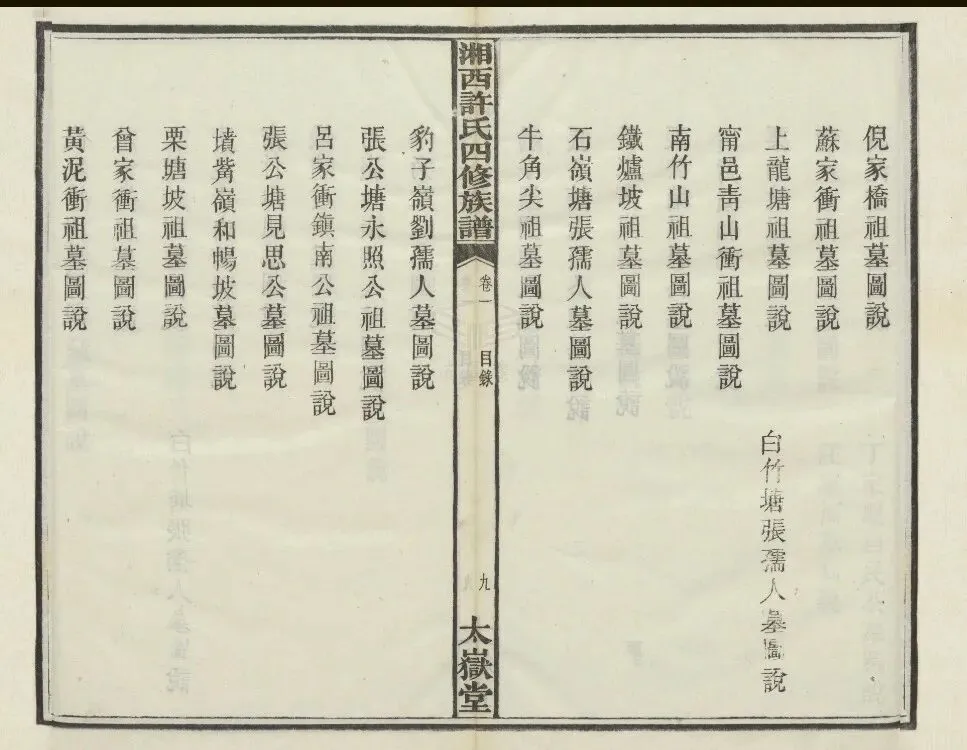 倪家橋祖墓圖說
蘇家衝祖墓圖說
上龍塘祖墓圖說
白竹塘張孺人墓圖說
甯邑靑山衝祖墓圖說
南竹山祖墓圖說
鐵爐坡祖墓圖說
石嶺塘張孺人墓圖說
牛角尖祖墓圖說
湘西許氏四修族譜
卷一
目錄
九
太嶽堂
豹子嶺劉孺人墓圖說
張公塘永照公祖墓圖說
呂家衝鎭南公祖墓圖說
張公塘見思公墓圖說
墳觜嶺和暢坡墓圖說
栗塘坡祖墓圖說
曾家衝祖墓圖說
黃泥衝祖墓圖說